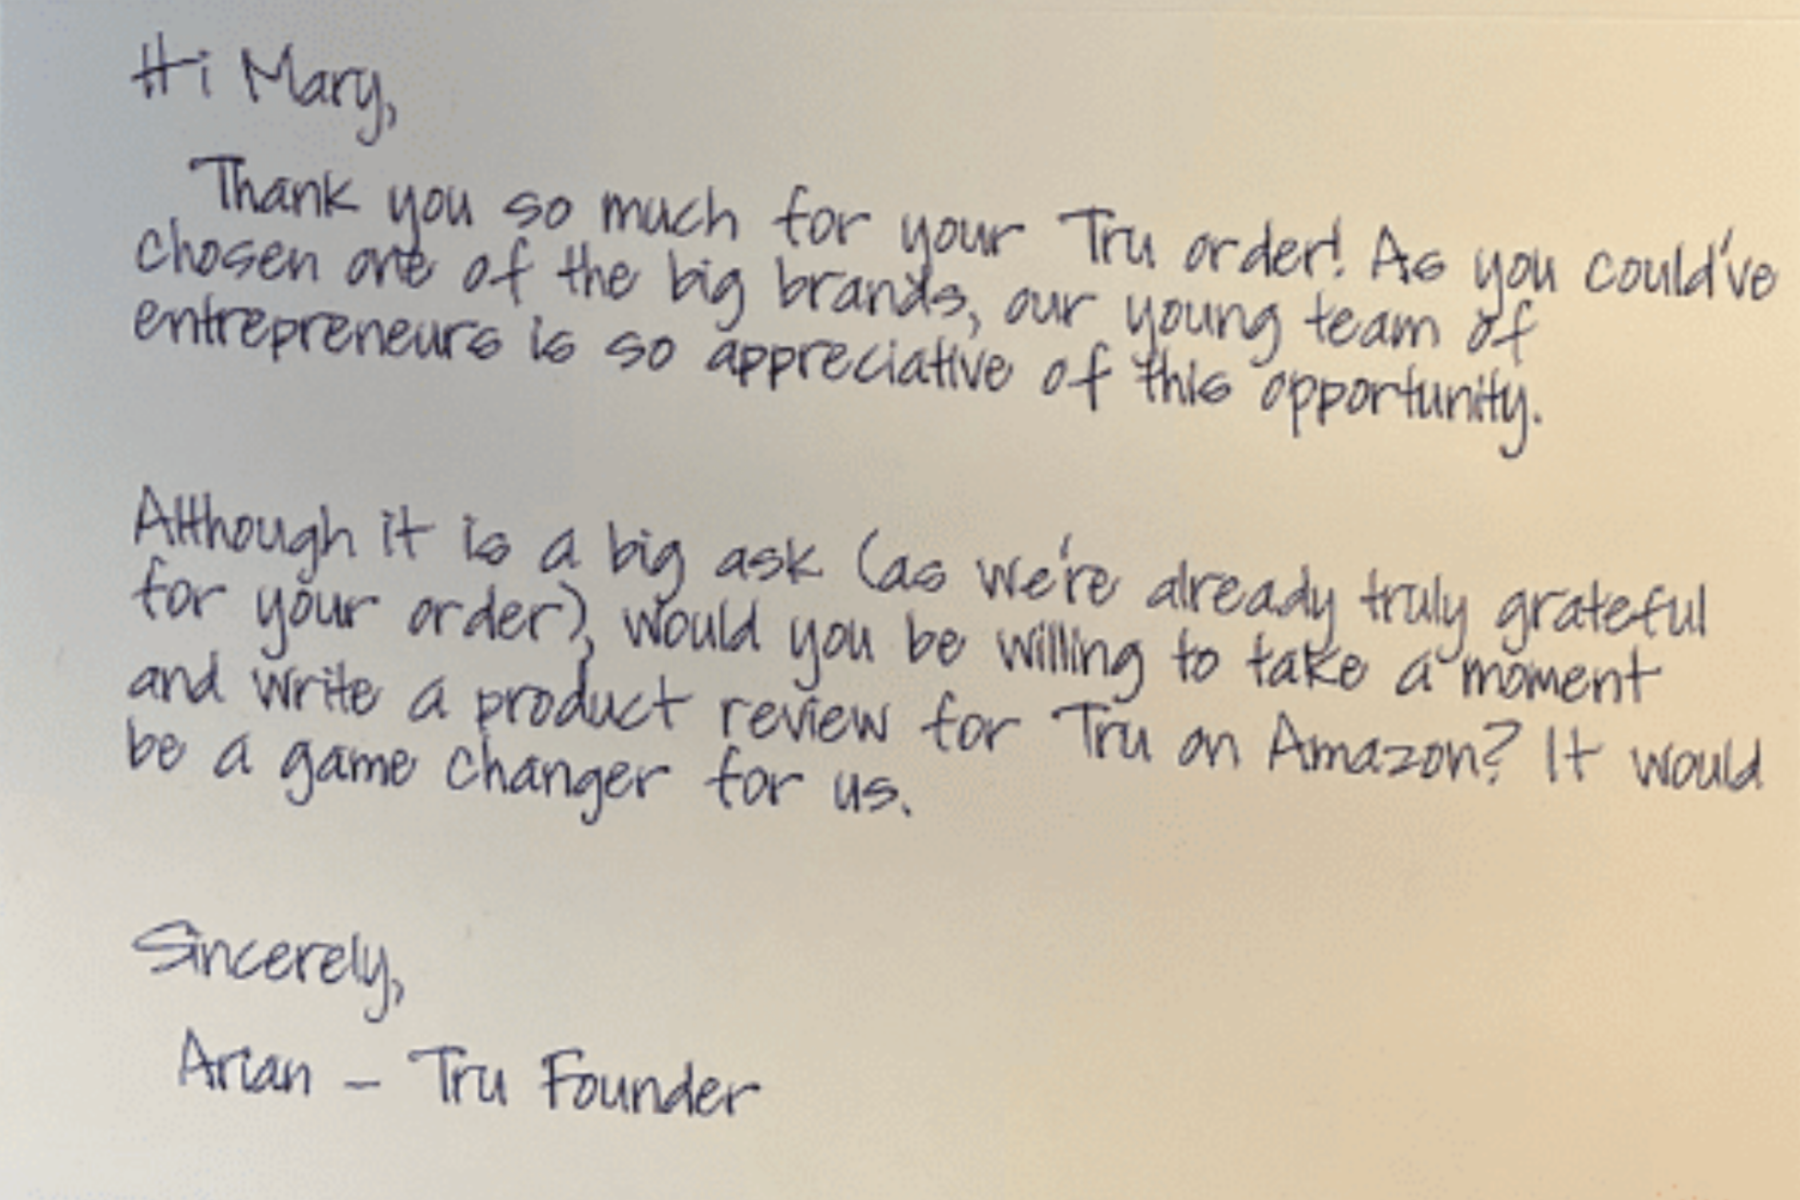 Hi Mary,
Thank you so much for your Tru order! As you could've
chosen one of the big brands, our young team of
entrepreneurs is so appreciative of this opportunity.
Although it is a big ask (as we're already truly grateful
for your order), would you be willing to take a moment
and write a product review for Tru on Amazon? It would
be a game changer for us.
Sincerely,
Arian - Tru Founder